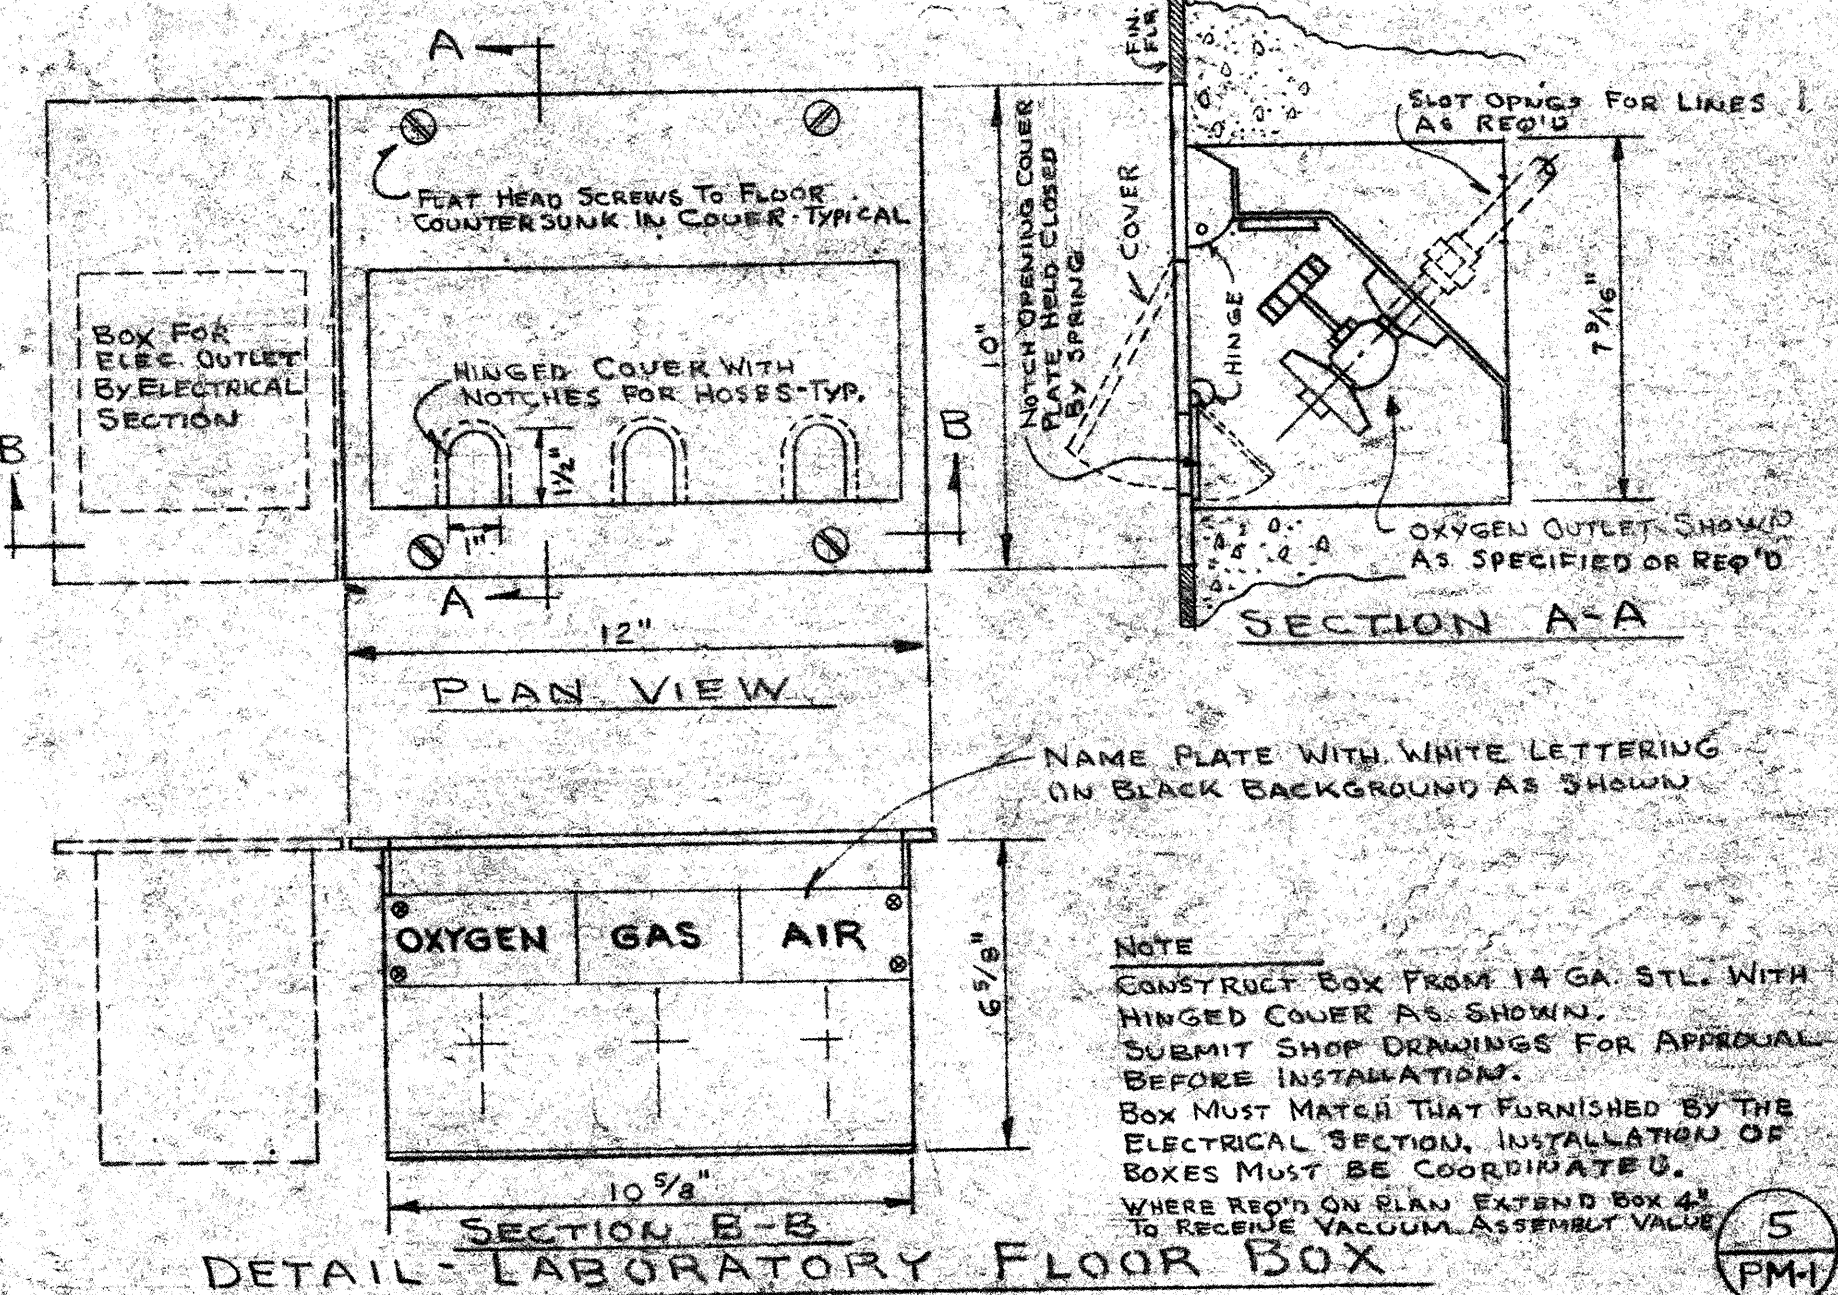 A
FLAT HEAD SCREWS TO FLOOR
COUNTERSUNK IN COVER-TYPICAL
BOX FOR
ELEC. OUTLET
BY ELECTRICAL
SECTION
HINGED COVER WITH
NOTCHES FOR HOSES-TYP.
1½"
1"
B
B
A
12"
PLAN VIEW
10"
NOTCH OPENING COVER
PLATE HELD CLOSED
BY SPRING
COVER
HINGE
FIN.
FLR.
SLOT OPNGS FOR LINES
AS REQ'D
7 9/16"
OXYGEN OUTLET SHOWN
AS SPECIFIED OR REQ'D
SECTION A-A
NAME PLATE WITH WHITE LETTERING
ON BLACK BACKGROUND AS SHOWN
OXYGEN GAS AIR
6 5/8"
10 5/8"
SECTION B-B
NOTE
CONSTRUCT BOX FROM 14 GA. STL. WITH
HINGED COVER AS SHOWN.
SUBMIT SHOP DRAWINGS FOR APPROVAL
BEFORE INSTALLATION.
BOX MUST MATCH THAT FURNISHED BY THE
ELECTRICAL SECTION. INSTALLATION OF
BOXES MUST BE COORDINATED.
WHERE REQ'D ON PLAN EXTEND BOX 4"
TO RECEIVE VACUUM ASSEMBLY VALVE
DETAIL-LABORATORY FLOOR BOX
5
PM-1